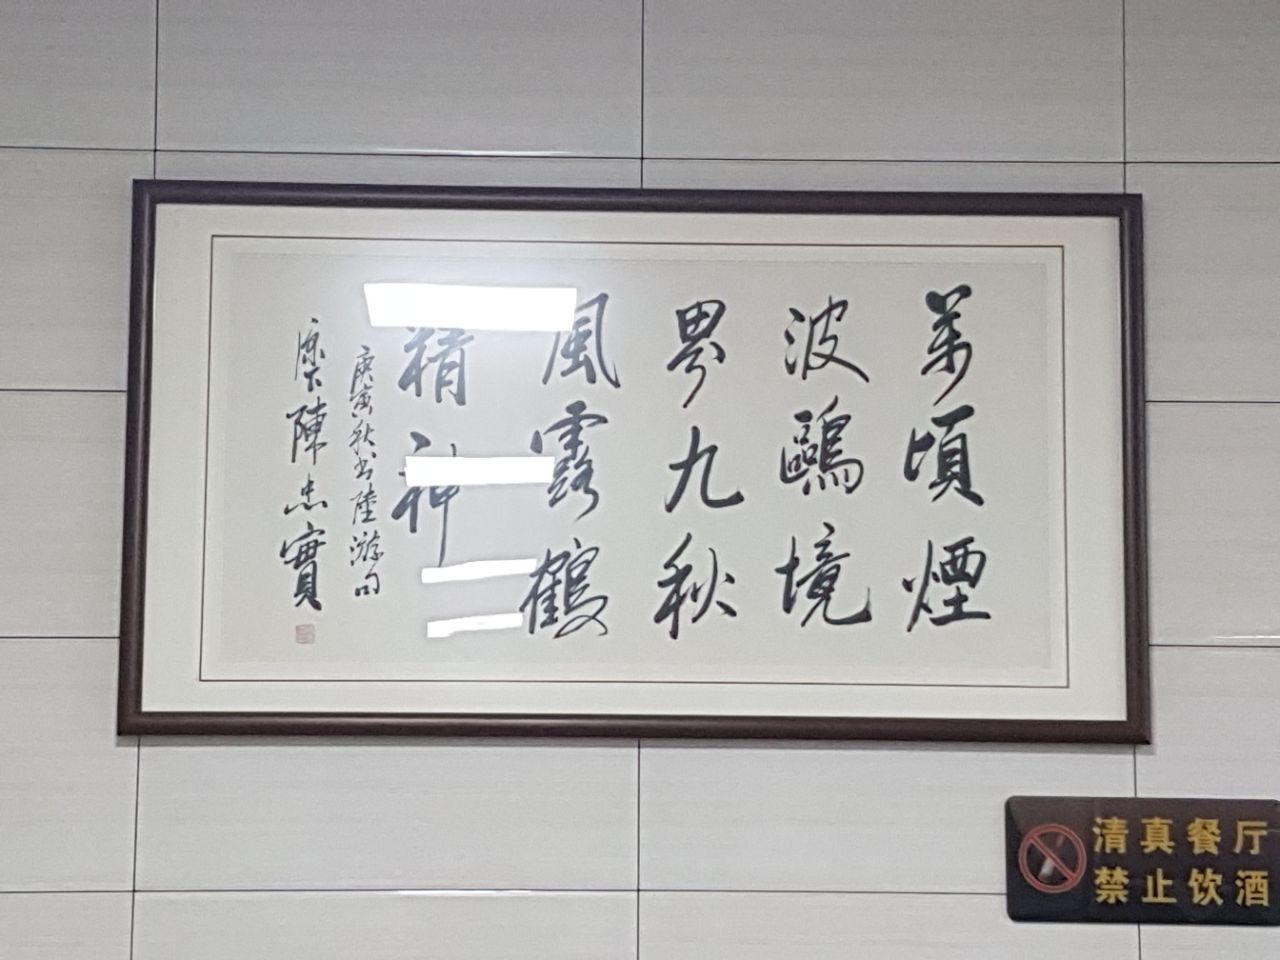 萬頃煙
波鷗境
界九秋
風露鶴
精神
庚寅秋書陸游句
原下陳忠實
清真餐厅
禁止饮酒